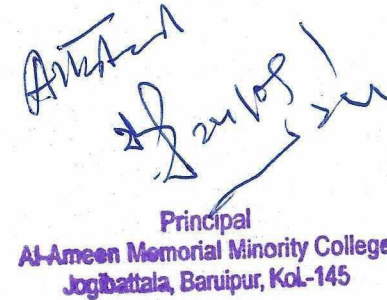 Attested
Principal
Al-Ameen Memorial Minority College
Jogibattala, Baruipur, Kol.-145